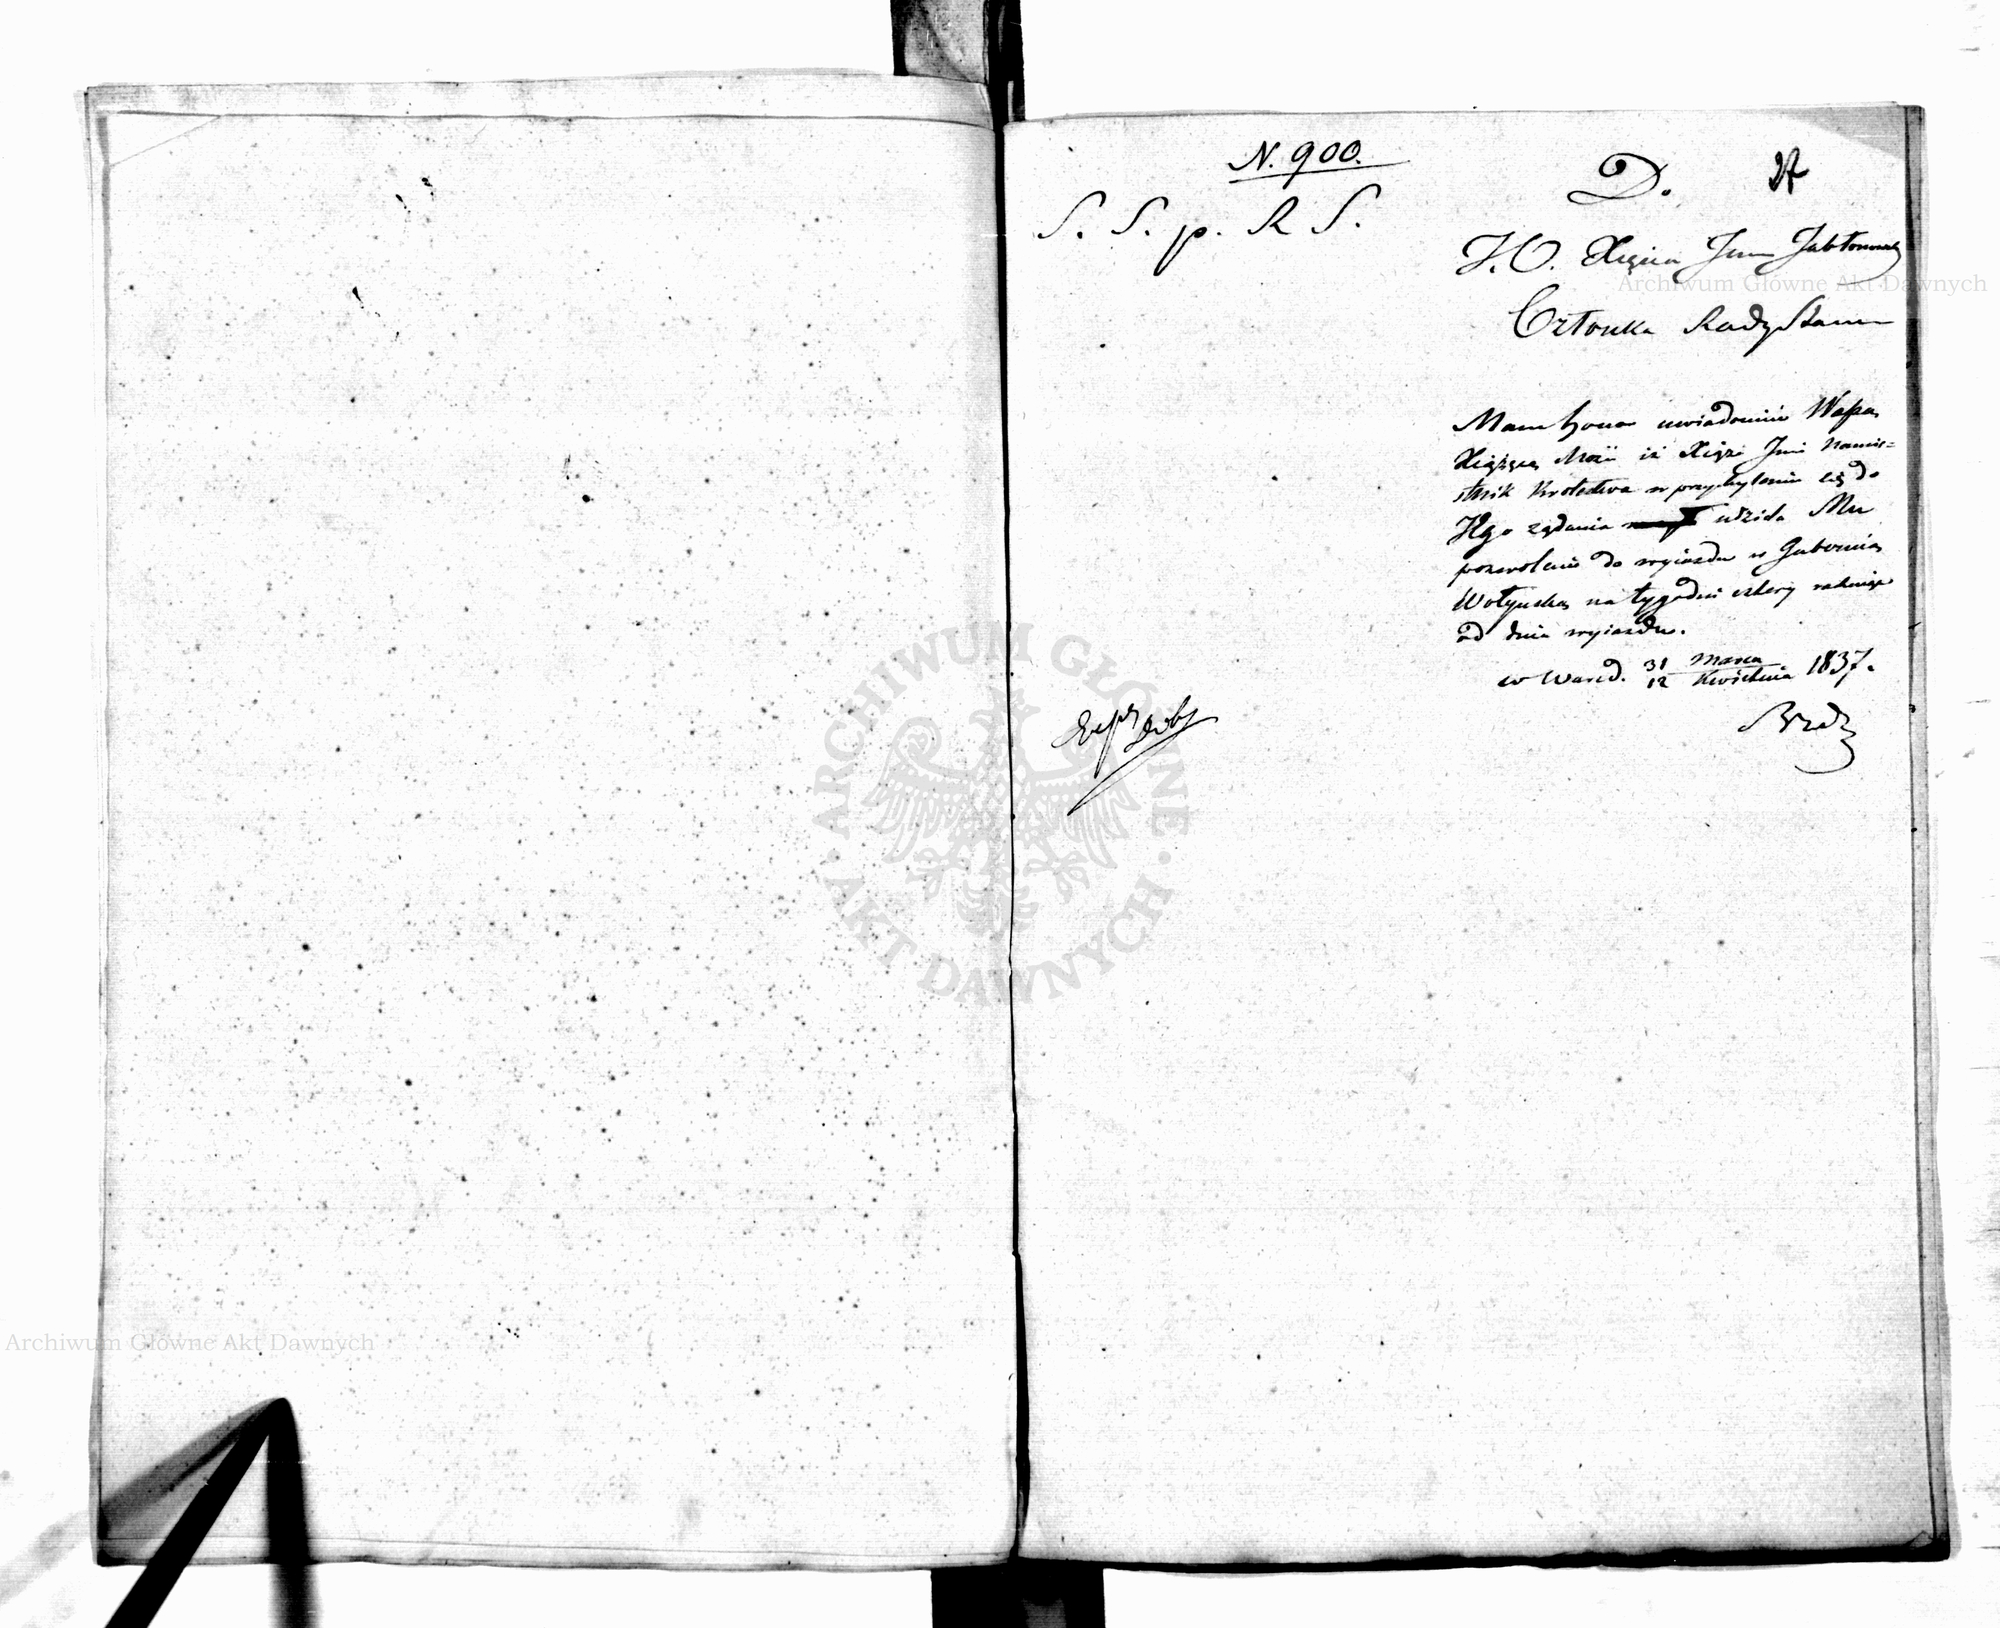 N. 900.
D.
27
S. S. p. R S.
J. O. Xięcia Jmci Jabłonowsk
Członka Rady Stanu
Mam honor uwiadomić Waszą
Xiążęcą Mość iż Xiąże Jmć Namie=
stnik Królestwa w przychyleniu się do
Jego żądania udziela Mu
pozwolenie do wyjazdu w Gubernią
Wołyńską na tygodni cztery rachując
od dnia wyjazdu.
w Warsz. 31 Marca / 12 Kwietnia 1837.
Archiwum Główne Akt Dawnych
ARCHIWUM GŁÓWNE
AKT DAWNYCH
Archiwum Główne Akt Dawnych